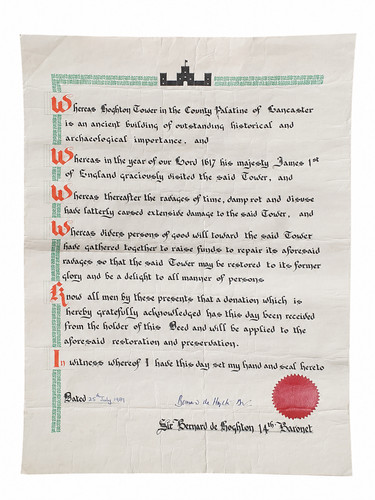 Whereas Hoghton Tower in the County Palatine of Lancaster
is an ancient building of outstanding historical and
archaeological importance, and
Whereas in the year of our Lord 1617 his majesty James 1st
of England graciously visited the said Tower, and
Whereas thereafter the ravages of time, damp rot and disuse
have latterly caused extensive damage to the said Tower, and
Whereas divers persons of good will toward the said Tower
have gathered together to raise funds to repair its aforesaid
ravages so that the said Tower may be restored to its former
glory and be a delight to all manner of persons
Know all men by these presents that a donation which is
hereby gratefully acknowledged has this day been received
from the holder of this Deed and will be applied to the
aforesaid restoration and preservation.
In witness whereof I have this day set my hand and seal hereto
Dated 25th July Bernard de Hoghton
Sir Bernard de Hoghton 14th Baronet